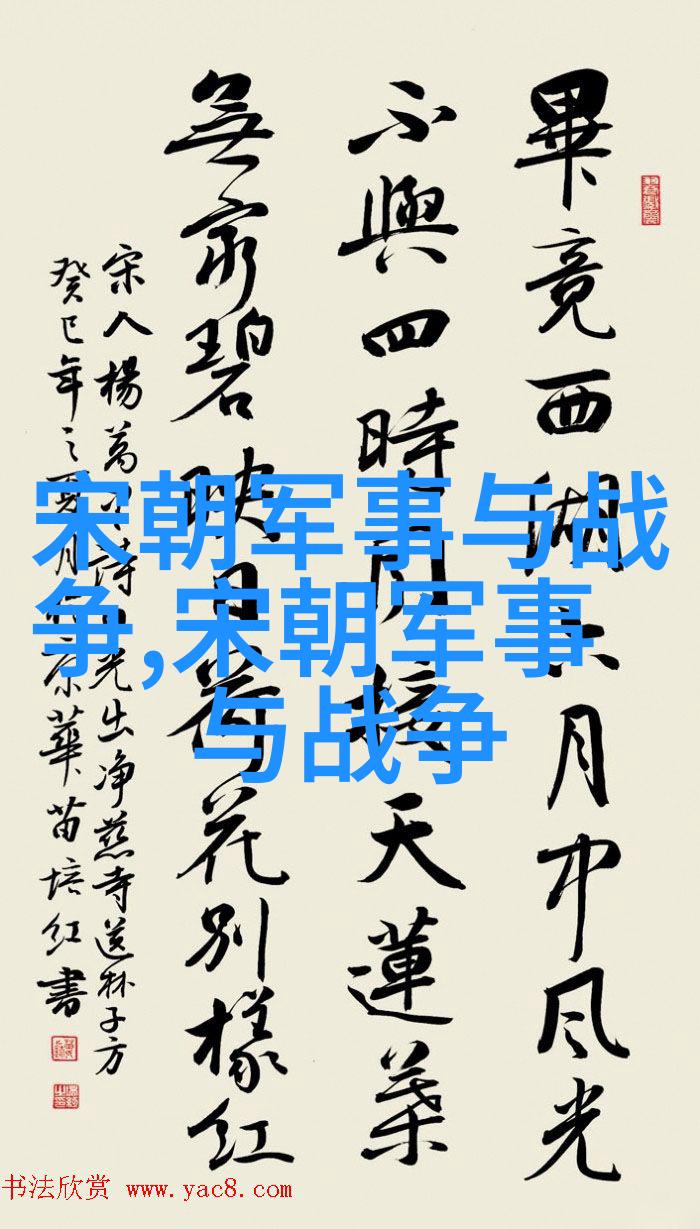 畢竟西湖六月中风光
不與四時同接天蓮葉
無窮碧映日荷花别樣红
宋人楊萬里詩 光出净慈寺送林子方
癸巳年之夏月 京華苗培红書
宋朝军事与战
争,宋朝军事
与战争
书法欣赏 www.yac8.com